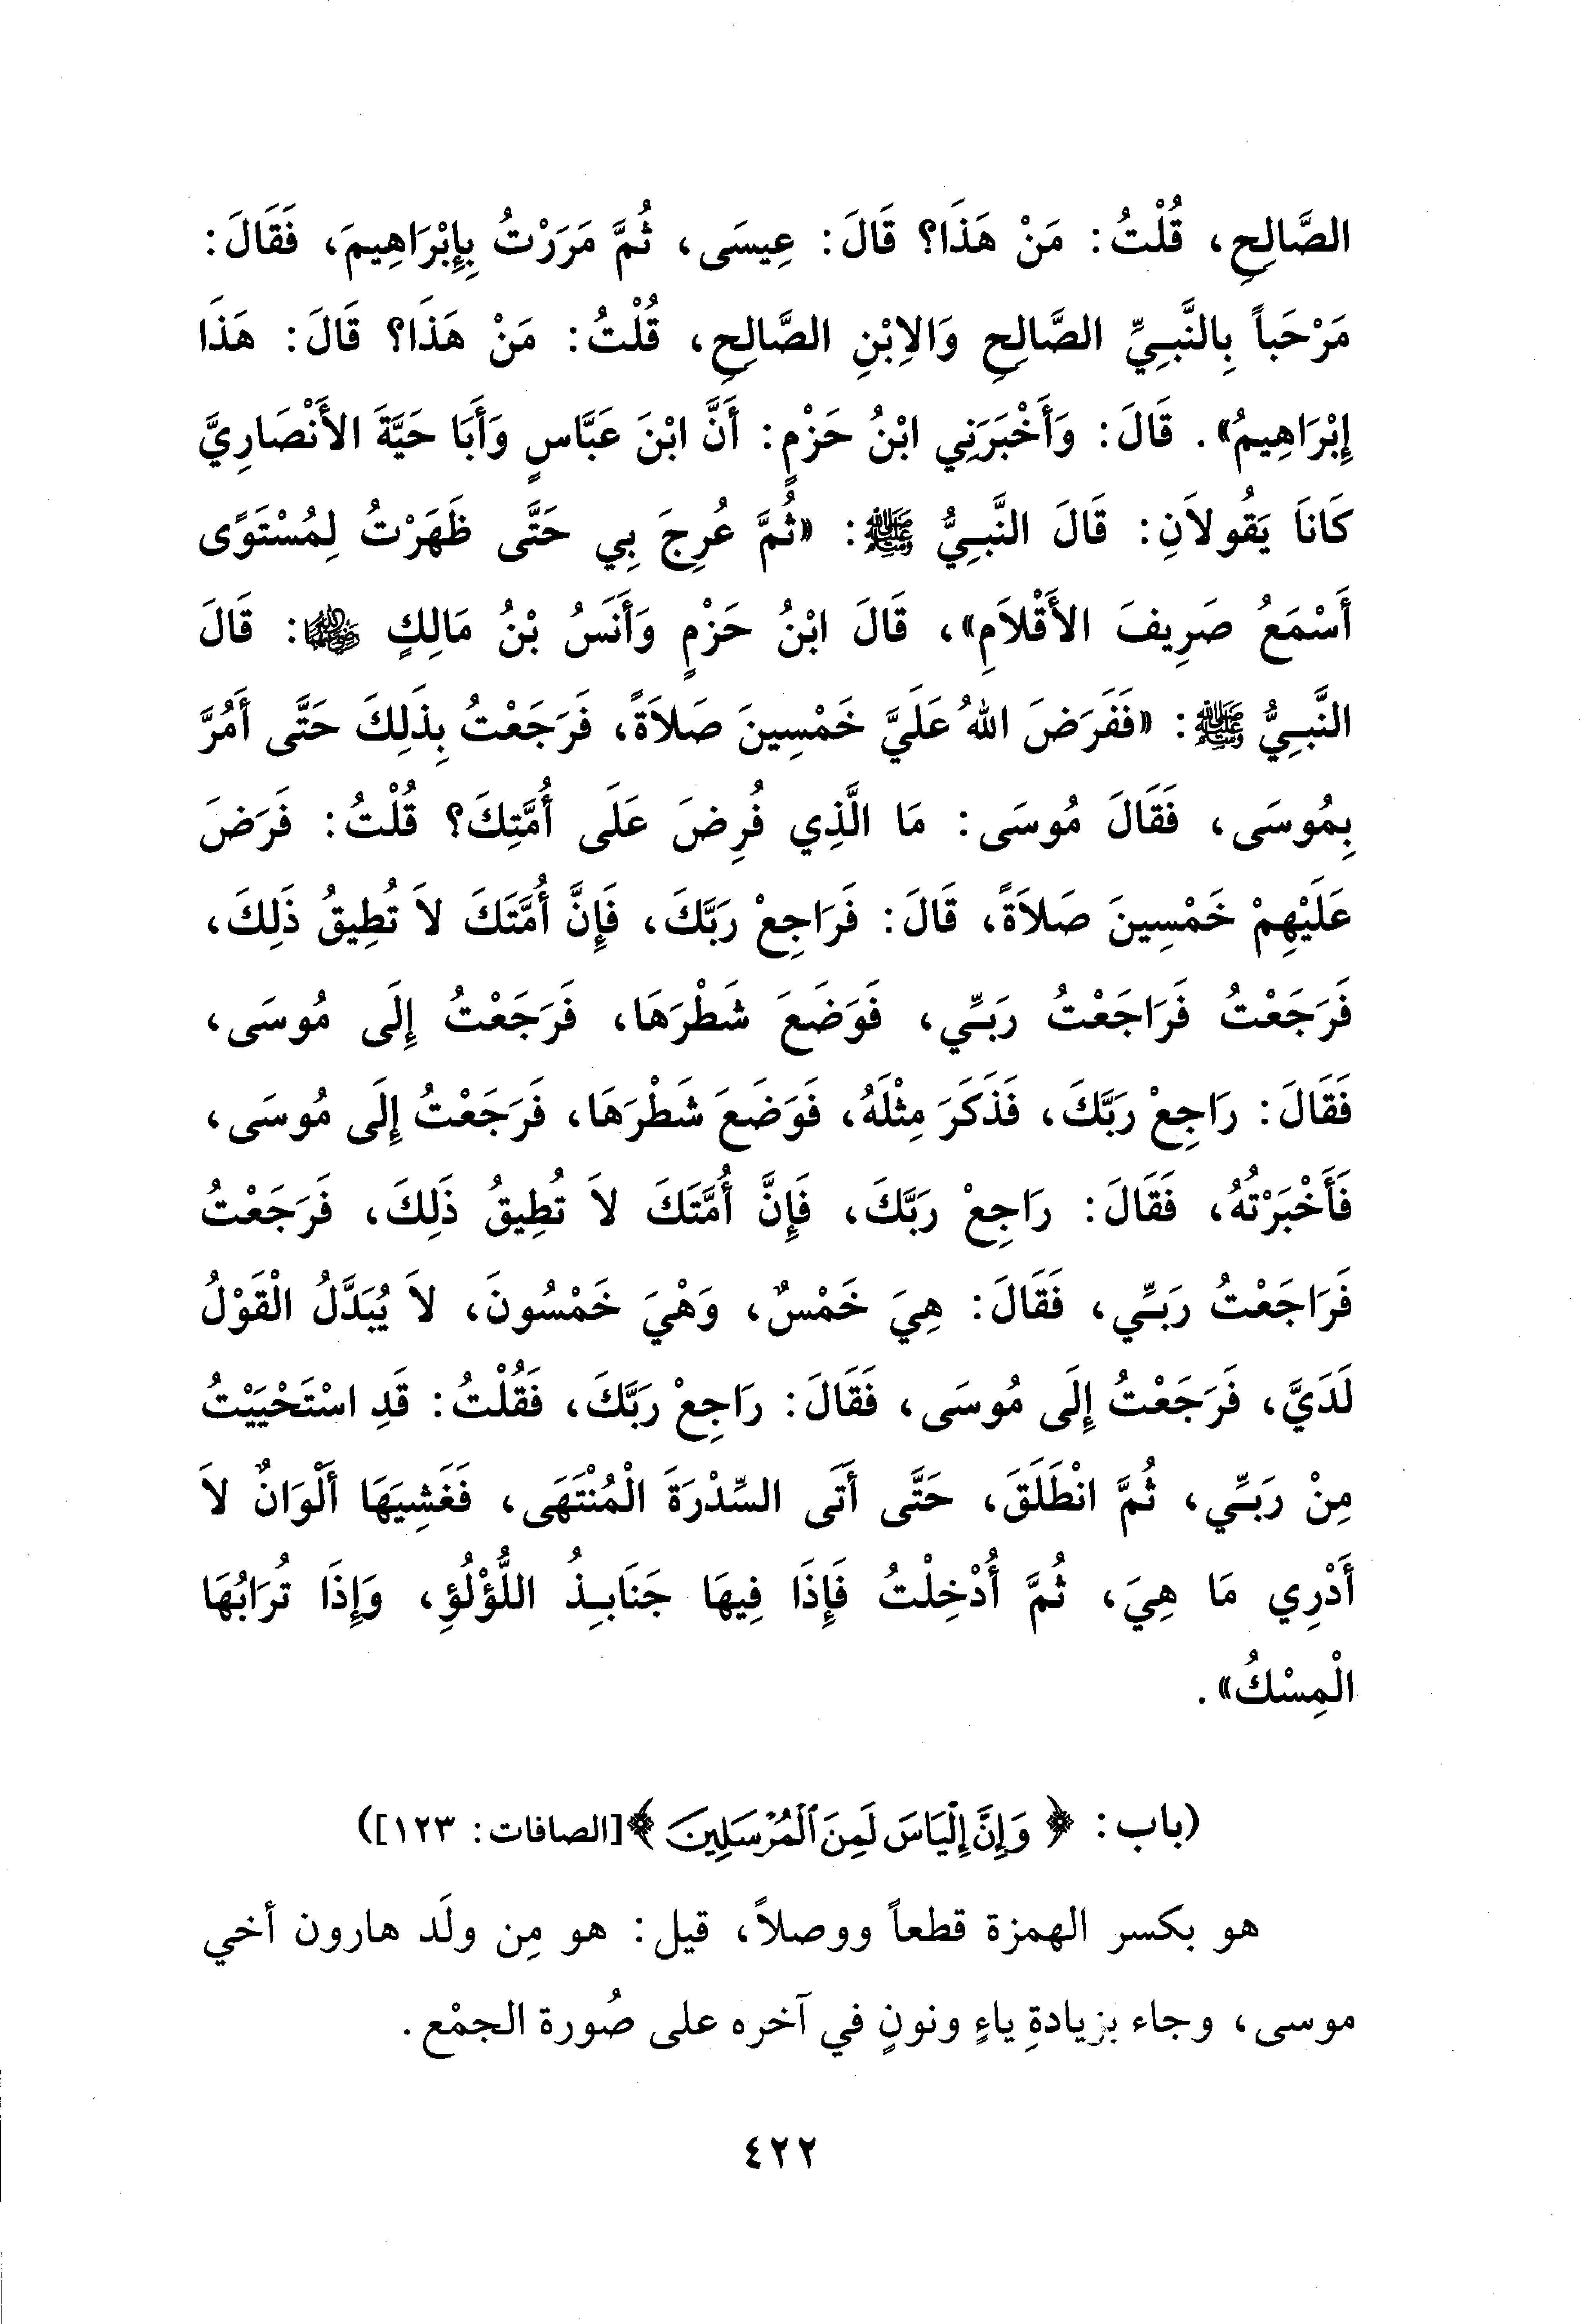 الصَّالِحِ، قُلْتُ: مَنْ هَذَا؟ قَالَ: عِيسَى، ثُمَّ مَرَرْتُ بِإِبْرَاهِيمَ، فَقَالَ:
مَرْحَباً بِالنَّبِيِّ الصَّالِحِ وَالاِبْنِ الصَّالِحِ، قُلْتُ: مَنْ هَذَا؟ قَالَ: هَذَا
إِبْرَاهِيمُ». قَالَ: وَأَخْبَرَنِي ابْنُ حَزْمٍ: أَنَّ ابْنَ عَبَّاسٍ وَأَبَا حَيَّةَ الأَنْصَارِيَّ
كَانَا يَقُولاَنِ: قَالَ النَّبِيُّ ﷺ: «ثُمَّ عُرِجَ بِي حَتَّى ظَهَرْتُ لِمُسْتَوًى
أَسْمَعُ صَرِيفَ الأَقْلاَمِ»، قَالَ ابْنُ حَزْمٍ وَأَنَسُ بْنُ مَالِكٍ رضي الله عنهما: قَالَ
النَّبِيُّ ﷺ: «فَفَرَضَ اللهُ عَلَيَّ خَمْسِينَ صَلاَةً، فَرَجَعْتُ بِذَلِكَ حَتَّى أَمُرَّ
بِمُوسَى، فَقَالَ مُوسَى: مَا الَّذِي فُرِضَ عَلَى أُمَّتِكَ؟ قُلْتُ: فَرَضَ
عَلَيْهِمْ خَمْسِينَ صَلاَةً، قَالَ: فَرَاجِعْ رَبَّكَ، فَإِنَّ أُمَّتَكَ لاَ تُطِيقُ ذَلِكَ،
فَرَجَعْتُ فَرَاجَعْتُ رَبِّي، فَوَضَعَ شَطْرَهَا، فَرَجَعْتُ إِلَى مُوسَى،
فَقَالَ: رَاجِعْ رَبَّكَ، فَذَكَرَ مِثْلَهُ، فَوَضَعَ شَطْرَهَا، فَرَجَعْتُ إِلَى مُوسَى،
فَأَخْبَرْتُهُ، فَقَالَ: رَاجِعْ رَبَّكَ، فَإِنَّ أُمَّتَكَ لاَ تُطِيقُ ذَلِكَ، فَرَجَعْتُ
فَرَاجَعْتُ رَبِّي، فَقَالَ: هِيَ خَمْسٌ، وَهْيَ خَمْسُونَ، لاَ يُبَدَّلُ الْقَوْلُ
لَدَيَّ، فَرَجَعْتُ إِلَى مُوسَى، فَقَالَ: رَاجِعْ رَبَّكَ، فَقُلْتُ: قَدِ اسْتَحْيَيْتُ
مِنْ رَبِّي، ثُمَّ انْطَلَقَ، حَتَّى أَتَى السِّدْرَةَ الْمُنْتَهَى، فَغَشِيَهَا أَلْوَانٌ لاَ
أَدْرِي مَا هِيَ، ثُمَّ أُدْخِلْتُ فَإِذَا فِيهَا جَنَابِذُ اللُّؤْلُؤِ، وَإِذَا تُرَابُهَا
الْمِسْكُ».
(باب: ﴿وَإِنَّ إِلْيَاسَ لَمِنَ ٱلْمُرْسَلِينَ﴾[الصافات: ١٢٣])
هو بكسر الهمزة قطعاً ووصلاً، قيل: هو مِن ولَد هارون أخي
موسى، وجاء بزيادةِ ياءٍ ونونٍ في آخره على صُورة الجمْع.
٤٢٢